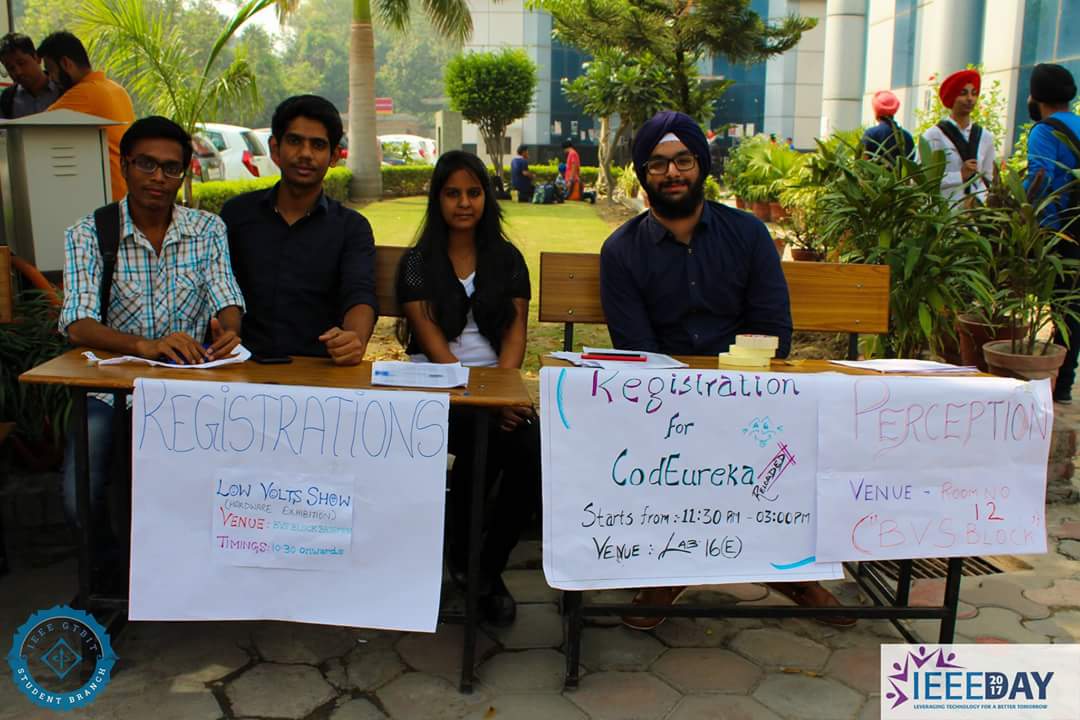 REGISTRATIONS
LOW VOLTS SHOW
(HARDWARE EXHIBITION)
VENUE: BVS BLOCK
TIMINGS: 10:30 onwards
Registration
for
CodEureka
RELOADED
Starts from:- 11:30 AM - 03:00PM
VENUE: LAB 16(E)
PERCEPTION
VENUE - ROOM NO
12
("BVS BLOCK")
IEEE GTBIT
STUDENT BRANCH
IEEE DAY 2017
LEVERAGING TECHNOLOGY FOR A BETTER TOMORROW